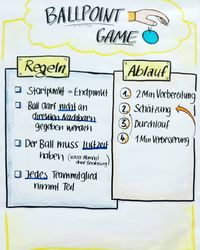 BALLPOINT
GAME
Regeln
Startpunkt = Endpunkt
Ball darf nicht an
direkten Nachbarn
gegeben werden
Der Ball muss Luftzeit
haben (keine Berührung
Jedes Teammitglied
nimmt Teil
Ablauf
1. 2 Min Vorbereitung
2. Schätzung
3. Durchlauf
4. 1 Min Verbesserung